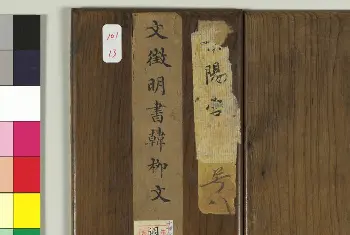 101
13
文徴明書韓柳文
陽宮